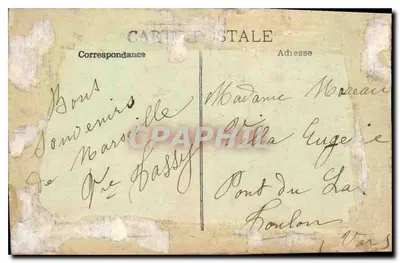 CARTE POSTALE
Correspondance
Adresse
Bons
Souvenirs
de Marseille
Vve Tassy
Madame Moreau
Villa Eugenie
Pont du Las
Toulon
Var
CPAPHIL